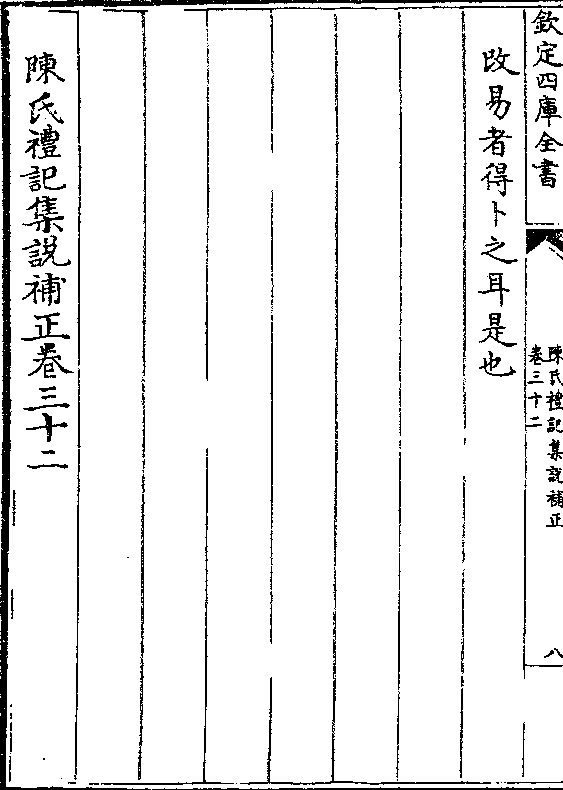 欽定四庫全書
陳氏禮記集說補正
卷三十二
八
改易者得卜之耳是也
陳氏禮記集說補正卷三十二